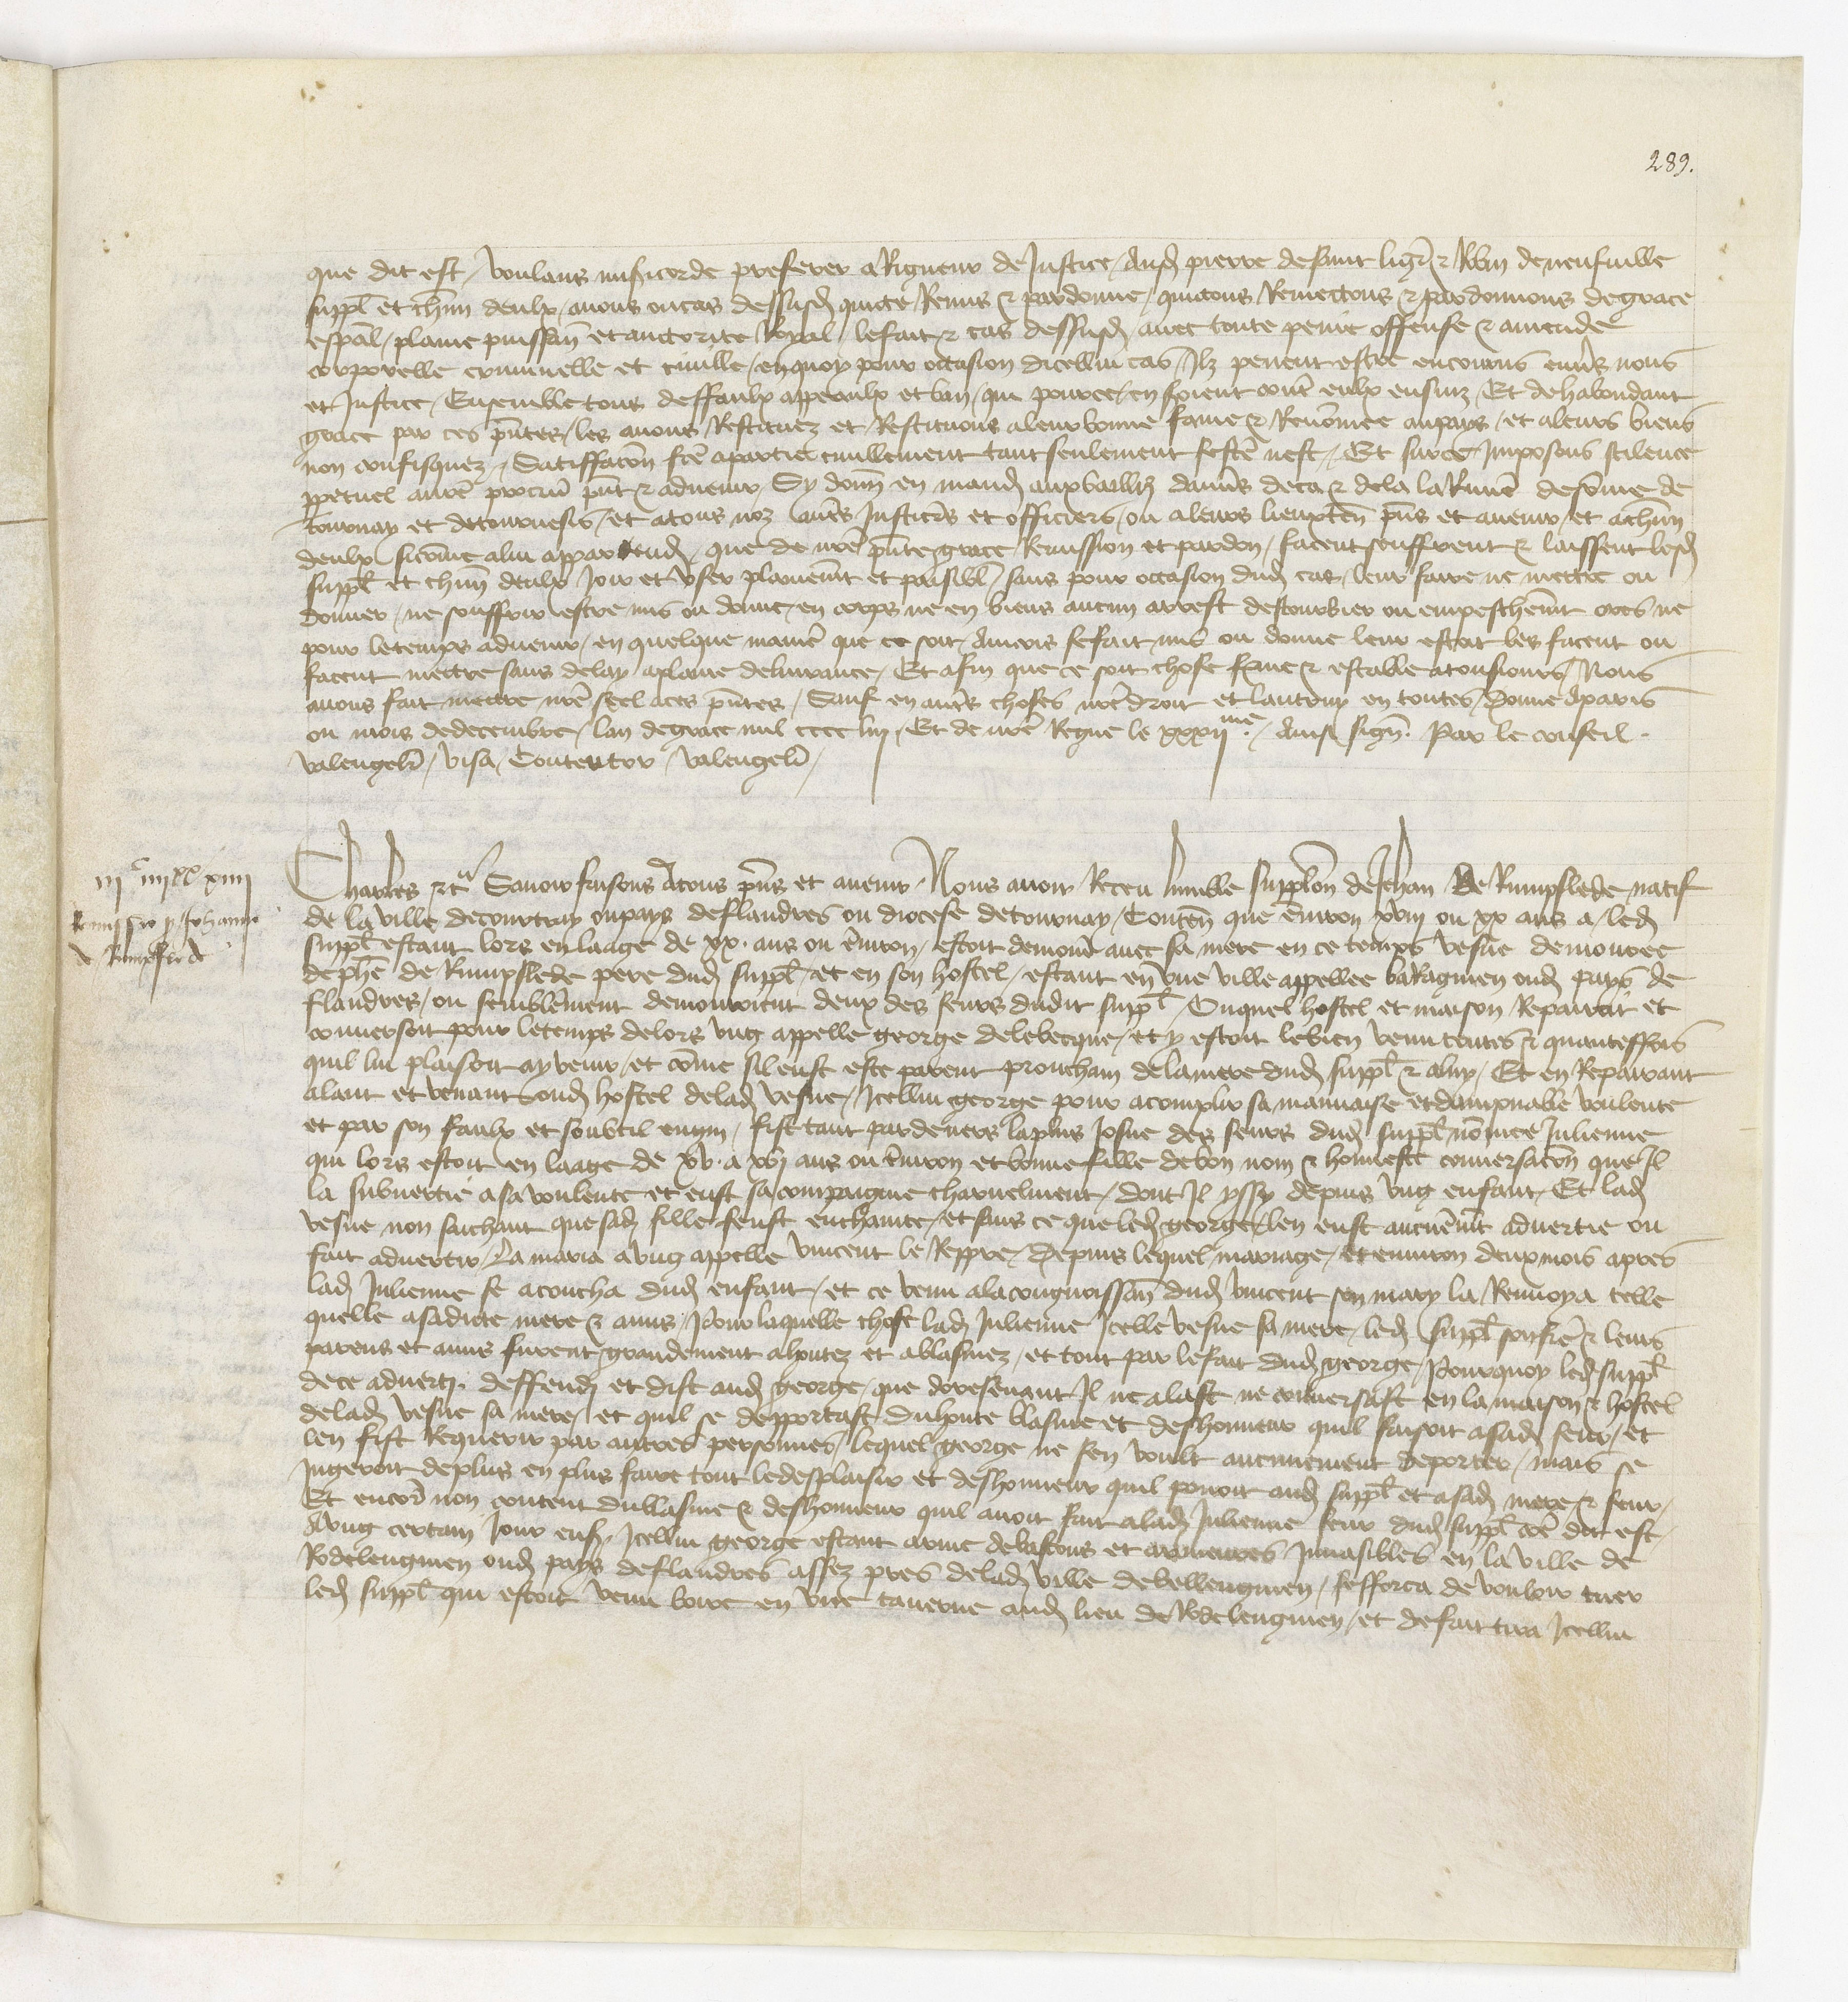 289.
que dit est / voulans misericorde preferer a Rigueur de Justice / Ausd pierre de saint ligr̃ & Robin de neufville
suppl̃ et chũn deulx / auons ou cas dessusd quicte Remis & pardonne / quictons Remectons & pardonnons de grace
esp̃al / plaine puissãn et auctorite Royal / le fait & cas dessusd / auec toute peine offense & amende
corporelle criminelle et ciuille / en quoy pour occasion dicellui cas / Ilz peuent estre encourus enũs nous
et Justice / Ensemble tous deffaulx appeaulx et ban / qui pourroient en soient contr̃ eulx ensuiz / Et de habondant
grace par ces p̃ntes / les auons Restituez et Restituons a leur bonne fame & Renõmee au pays / et a leurs biens
non confisquez / Satisfacõn fcẽ a partie ciuillement tant seulement se fcẽ nest / Et sur ce Imposons scilence
p̱petuel a nrẽ procur̃ p̃nt & aduenir / Sy donñ en mand aux bailliz damiẽs deca & dela la Riuiẽ de sõme de
tournay et de tournesis / et a tous noz autr̃s Justicir̃s et officiers / ou a leurs lieuxteñ p̃ns et auenir / et a chũn
deulx si cõme a lui appartiend / que de nrẽ p̃nte grace Remission et pardon / facent seuffrent & laissent lesd
suppl̃ et chũn deulx Joir et vser plainem̃t et paisibl̃ / sans pour occasion dud cas / leur faire ne mettre ou
donner / ne souffrir estre mis ou donne / en corps ne en biens aucun arrest destourbier ou empeschem̃t ores ne
pour le temps aduenir / en quelque manier̃ que ce soit / Aincois se fait mis ou donne leur estoit les facent ou
facent mettre sans delay a plaine deliurance / Et afin que ce soit chose ferme & estable a tousiours / Nous
auons fait mettre nrẽ scel a ces p̃ntes / Sauf en autr̃s choses nrẽ droit et lautruy en toutes / Donne a paris
ou mois de decembre / lan de grace mil cccc liij / Et de nrẽ Regne le xxxij me / Ainsi signe. Par le conseil.
valengelĩ / visa / Contentor / valengelĩ /
iij c iiij xx xiiij
Remissio p Johanne
de Rumpslede
Charles &c Sauoir faisons A tous p̃ns et auenir / Nous auoir Receu lumble suppl̃on de Jehan de Rumpslede natif
de la ville de courtray ou pays de flandres ou diocese de tournay / Conteñ que enuiron xviij ou xx ans a / led
suppl̃ estant lors en laage de xx. ans ou ẽuiron / estoit demour̃ auec sa mere en ce temps vesue demouree
de ph̃e de Rumpslede pere dud suppl̃ / et en son hostel / estant en vne ville appellee bavagnien oud pays de
flandres / ou semblement demouroient deux des seurs dudit suppl̃ / Ouquel hostel et maison Repairoit et
conuersoit pour le temps de lors vng appelle george delebecque / et y estoit le bien venu toutes & quanteffois
quil lui plaisoit a y venir / et cõme sil eust este parent prouchain de la mere dud suppl̃ & a luy / Et en Repairant
alant et venant oud hostel de lad vesue / Icellui george pour acomplir sa mauuaise et dampnable voulente
et par son faulx et soubtil engin / fist tant par deuers la plus josne des seurs dud suppl̃ nõmee Julienne
qui lors estoit en laage de xv. a xvj ans ou ẽuiron et bonne fille de bon nom & honneste conuersacõn que Il
la subuertie a sa voulente et eust sa compaignie charnelment / dont Il yssy depuis vng enfant / Et lad
vesue non saichant que sad fille feust enchainte / et sans ce que led george len eust aucunem̃t aduertie ou
fait aduertir / la maria a vng appelle vincent le Keppre / Depuis lequel mariage / et enuiron deux mois apres
lad Julienne se acoucha dud enfant / et ce venu a la congnoissãn dud vincent son mary la Renuoya telle
quelle a sadicte mere & amis / Pour laquelle chose lad Julienne Icelle vesue sa mere / led suppl̃ son frer̃ & leurs
parens et amis furent grandement ahontez et ablasmez / et tout par le fait dud george / Pourquoy led suppl̃
de ce aduerty deffendj et dist aud george / que doresenant Il ne alast ne conuersast en la maison & hostel
de lad vesue sa mere / et quil se depportast du honte blasme et deshonneur quil faisoit a sad seur / et
len fist Requerir par autres personnes / lequel george ne sen voult aucunement deporter / mais se
Ingeroit de plus en plus faire tout le desplaisir et deshonneur quil pouoit aud suppl̃ et a sad mere & seur /
Et encor̃ non content du blasme & deshonneur quil auoit fait a lad Julienne seur dud suppl̃ cõe dit est /
A vng certain Jour ensj / Icellui george estant arme de bastons et armeures Inuasibles en la ville de
Rodelengnien oud pays de flandres assez pres de lad ville de bellengnien / sefforca de vouloir tuer
led suppl̃ qui estoit venu boire en vne tauerne aud lieu de Rodelengnien / et de fait tira Icellui